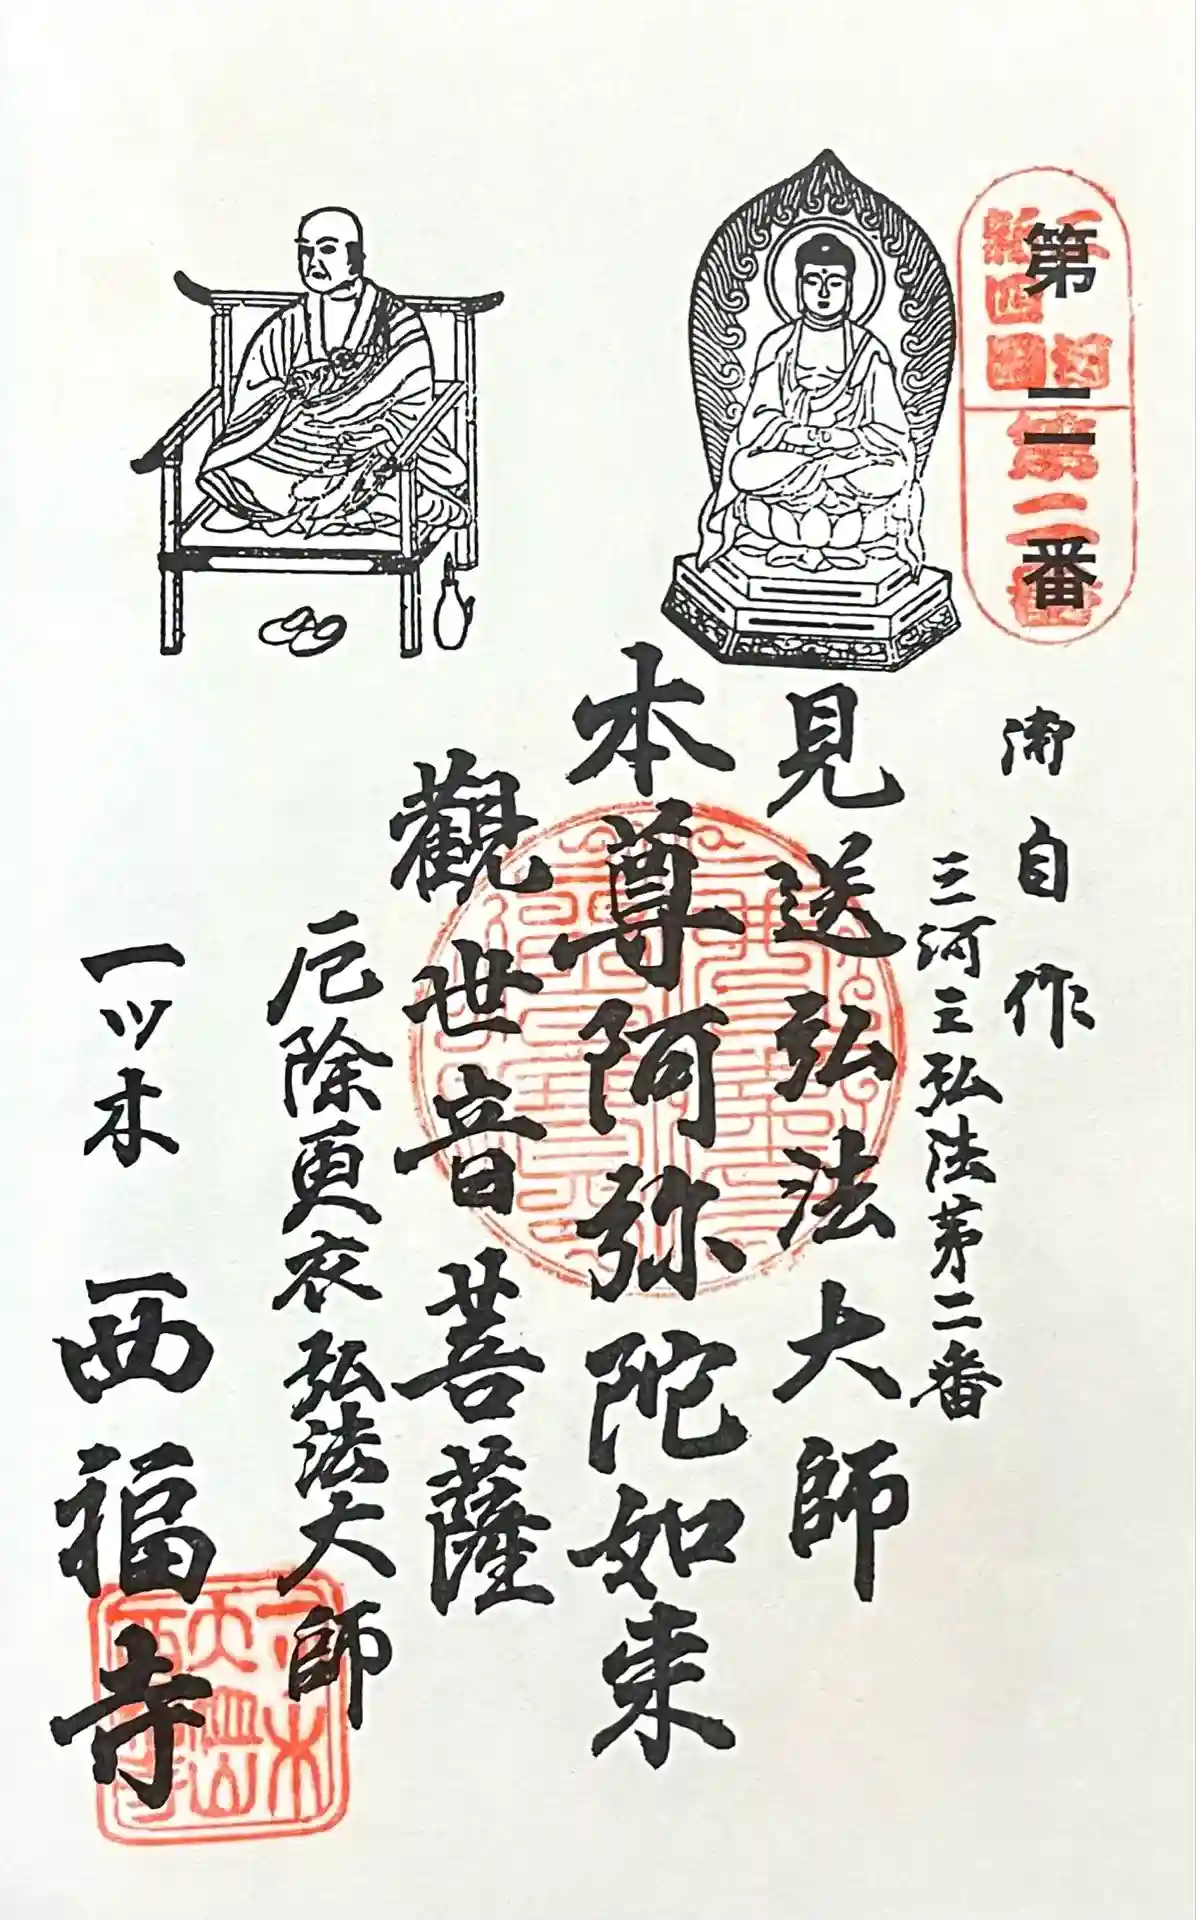 第二番
三河
新四国
第二番
御自作
三河三弘法第二番
見送弘法大師
本尊阿弥陀如来
觀世音菩薩
厄除更衣弘法大師
一ツ木
西福寺